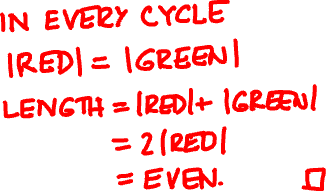 IN EVERY CYCLE
|RED| = |GREEN|
LENGTH = |RED| + |GREEN|
= 2|RED|
= EVEN. □